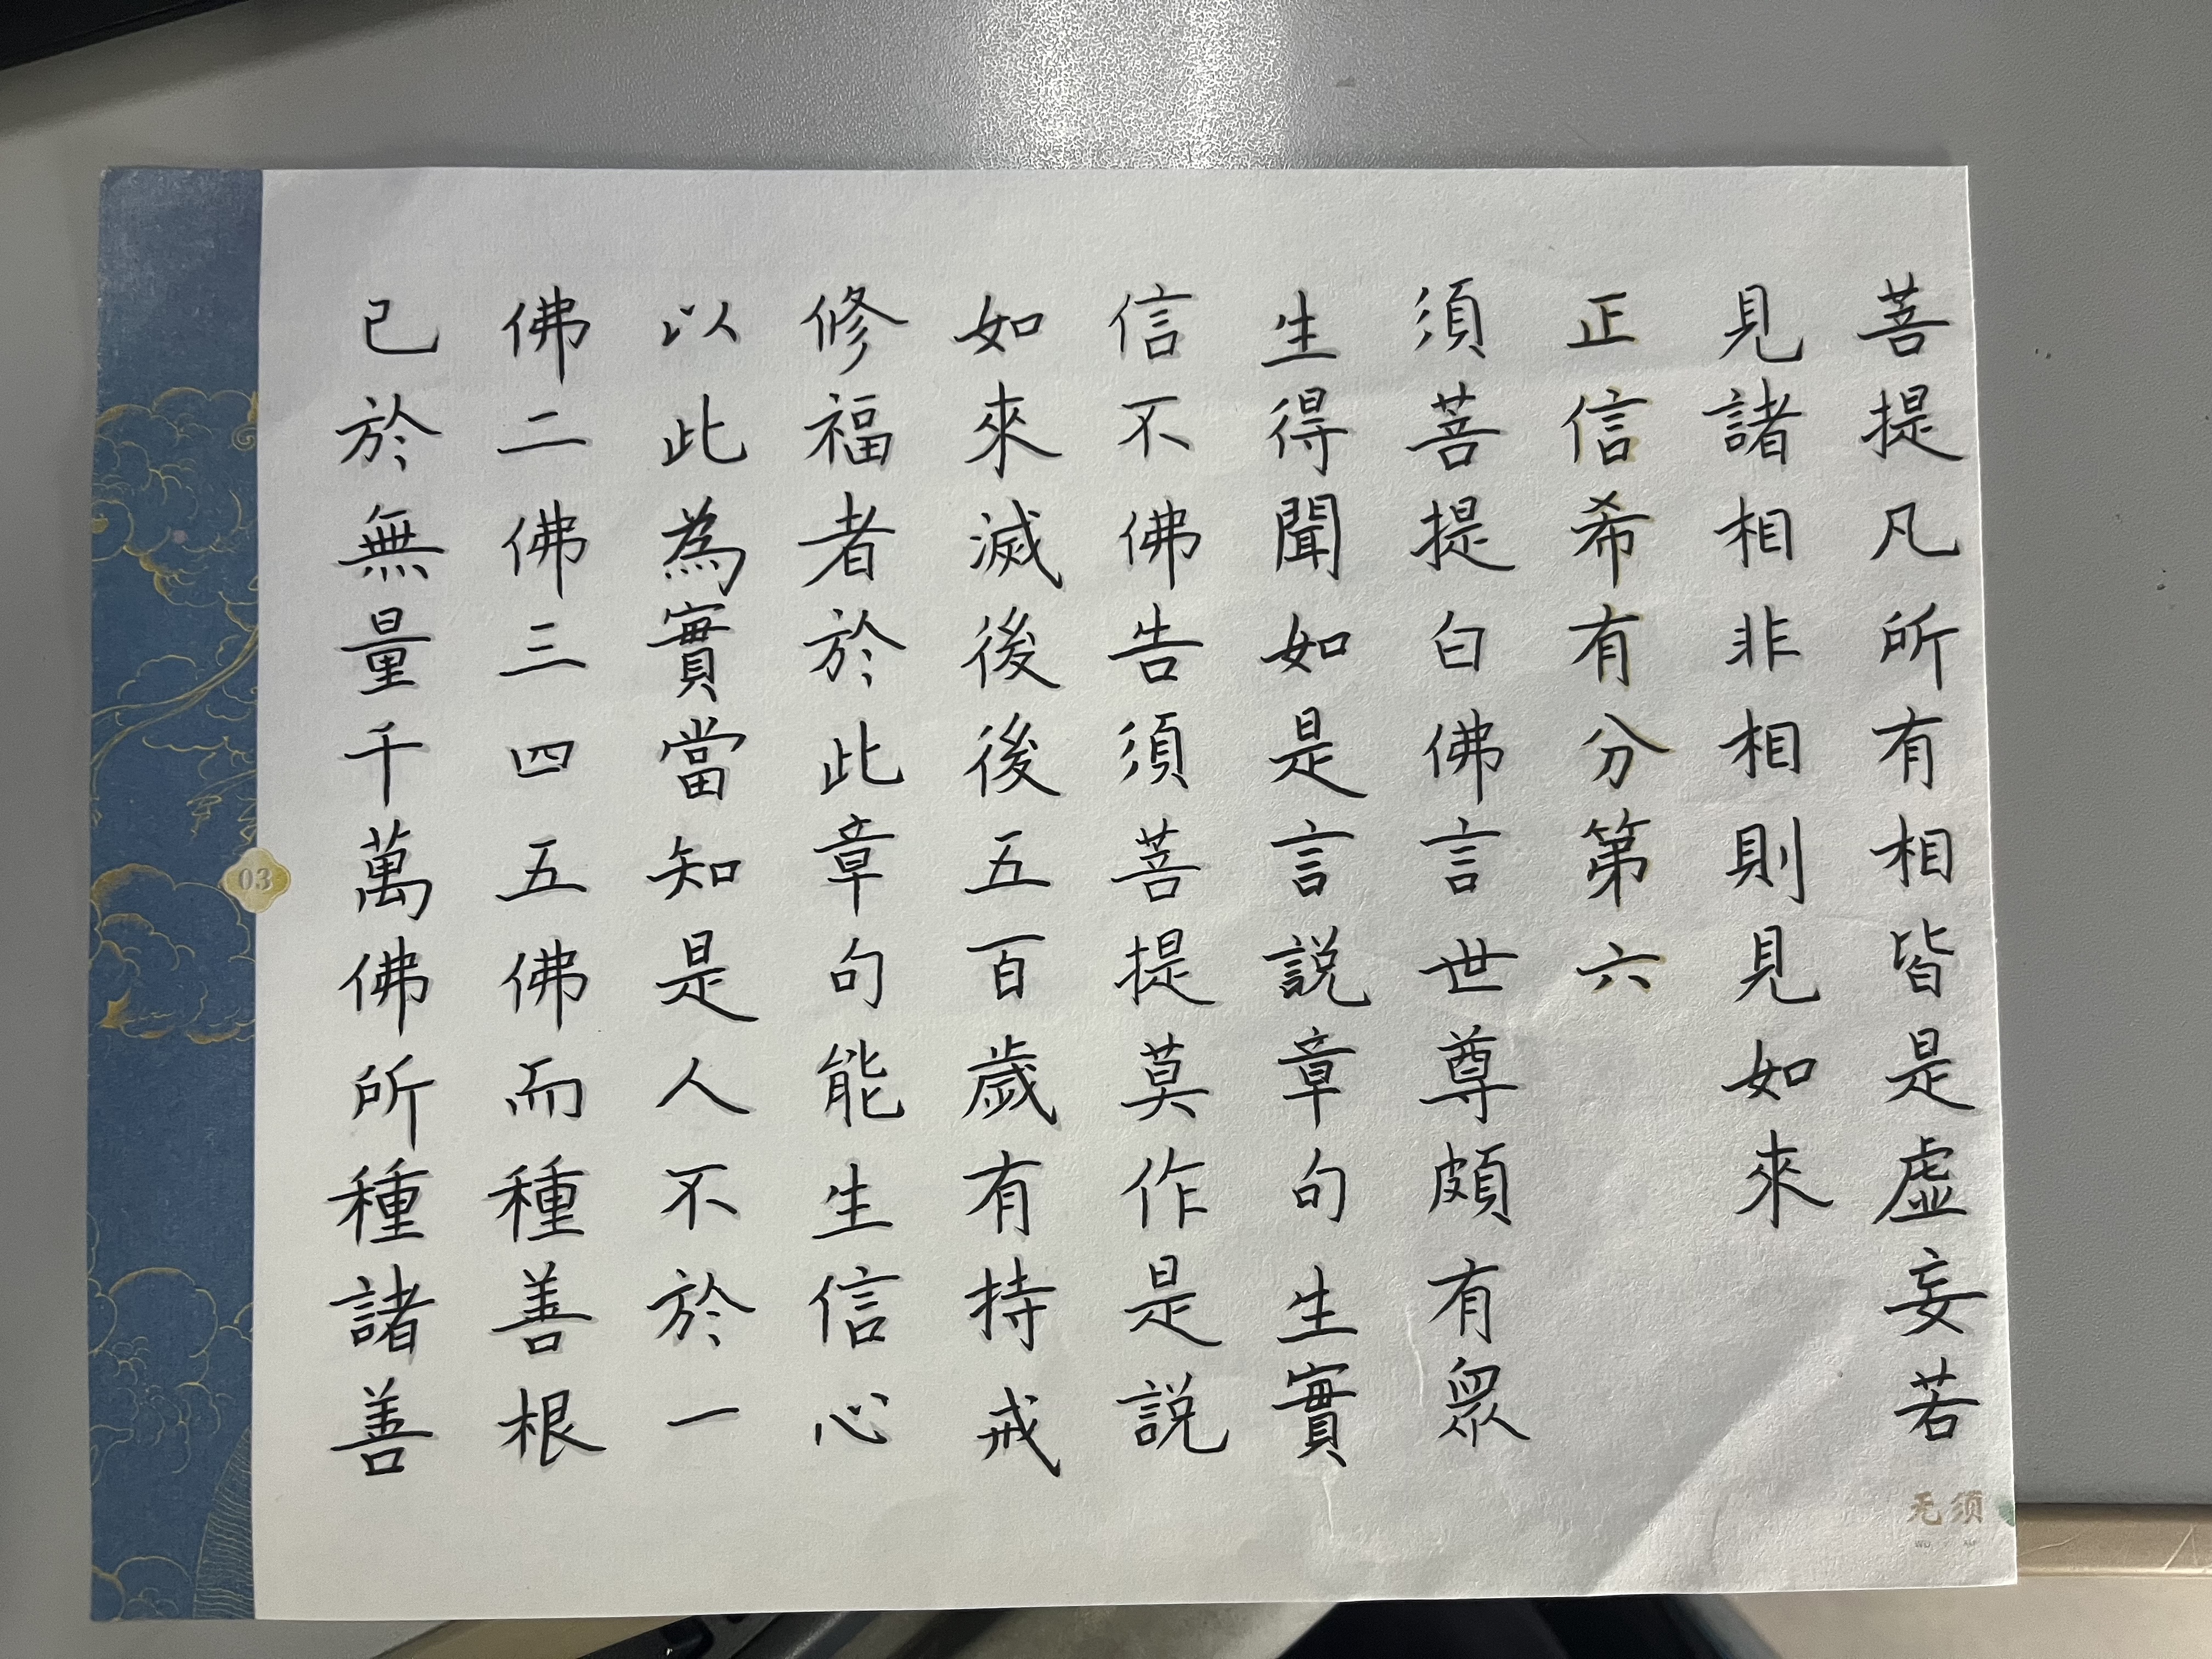 菩提凡所有相皆是虛妄若
見諸相非相則見如來
正信希有分第六
須菩提白佛言世尊頗有眾
生得聞如是言說章句生實
信不佛告須菩提莫作是說
如來滅後後五百歲有持戒
修福者於此章句能生信心
以此為實當知是人不於一
佛二佛三四五佛而種善根
已於無量千萬佛所種諸善
03